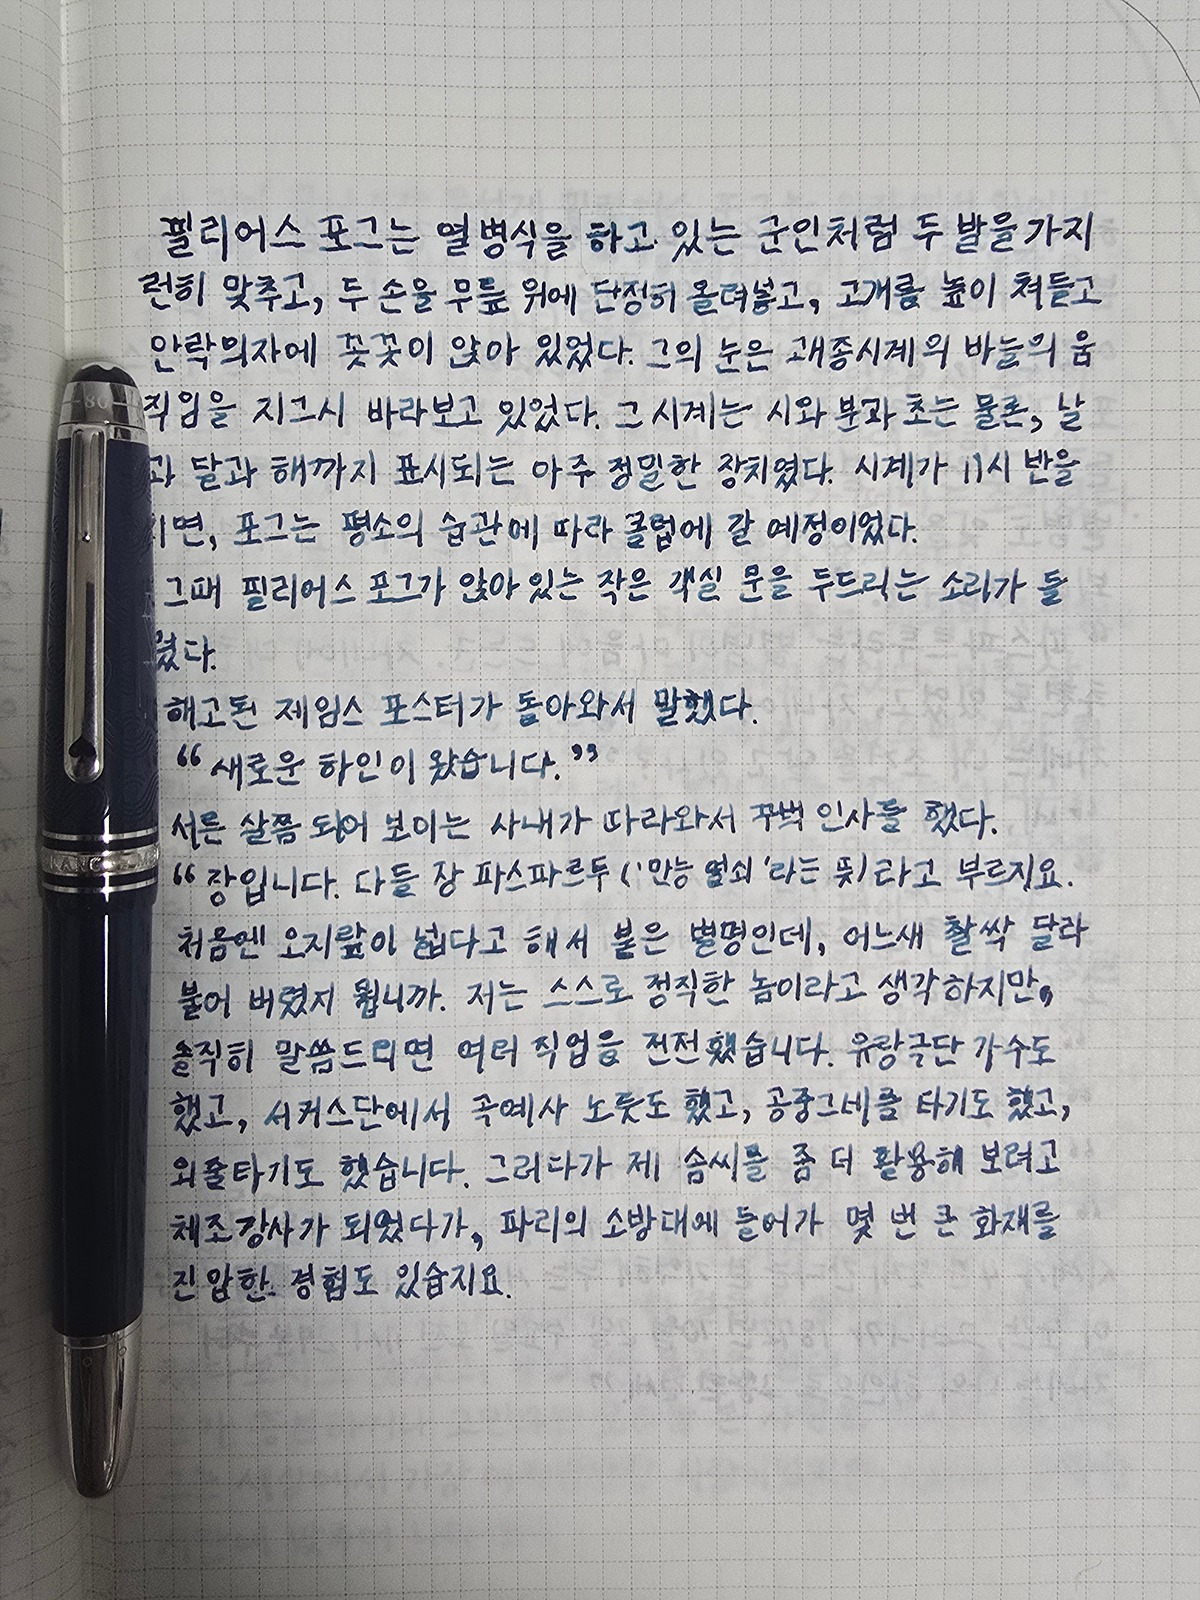 필리어스 포그는 열병식을 하고 있는 군인처럼 두 발을 가지
런히 맞추고, 두 손을 무릎 위에 단정히 올려놓고, 고개를 높이 쳐들고
안락의자에 꼿꼿이 앉아 있었다. 그의 눈은 괘종시계의 바늘의 움
직임을 지그시 바라보고 있었다. 그 시계는 시와 분과 초는 물론, 날
과 달과 해까지 표시되는 아주 정밀한 장치였다. 시계가 11시 반을
치면, 포그는 평소의 습관에 따라 클럽에 갈 예정이었다.
그때 필리어스 포그가 앉아 있는 작은 객실 문을 두드리는 소리가 들
렸다.
해고된 제임스 포스터가 돌아와서 말했다.
“새로운 하인이 왔습니다.”
서른 살쯤 되어 보이는 사내가 따라와서 꾸벅 인사를 했다.
“장입니다. 다들 장 파스파르투('만능 열쇠'라는 뜻)라고 부르지요.
처음엔 오지랖이 넓다고 해서 붙은 별명인데, 어느새 찰싹 달라
붙어 버렸지 뭡니까. 저는 스스로 정직한 놈이라고 생각하지만,
솔직히 말씀드리면 여러 직업을 전전했습니다. 유랑극단 가수도
했고, 서커스단에서 곡예사 노릇도 했고, 공중그네를 타기도 했고,
외줄타기도 했습니다. 그러다가 제 솜씨를 좀 더 활용해 보려고
체조강사가 되었다가, 파리의 소방대에 들어가 몇 번 큰 화재를
진압한 경험도 있습지요.